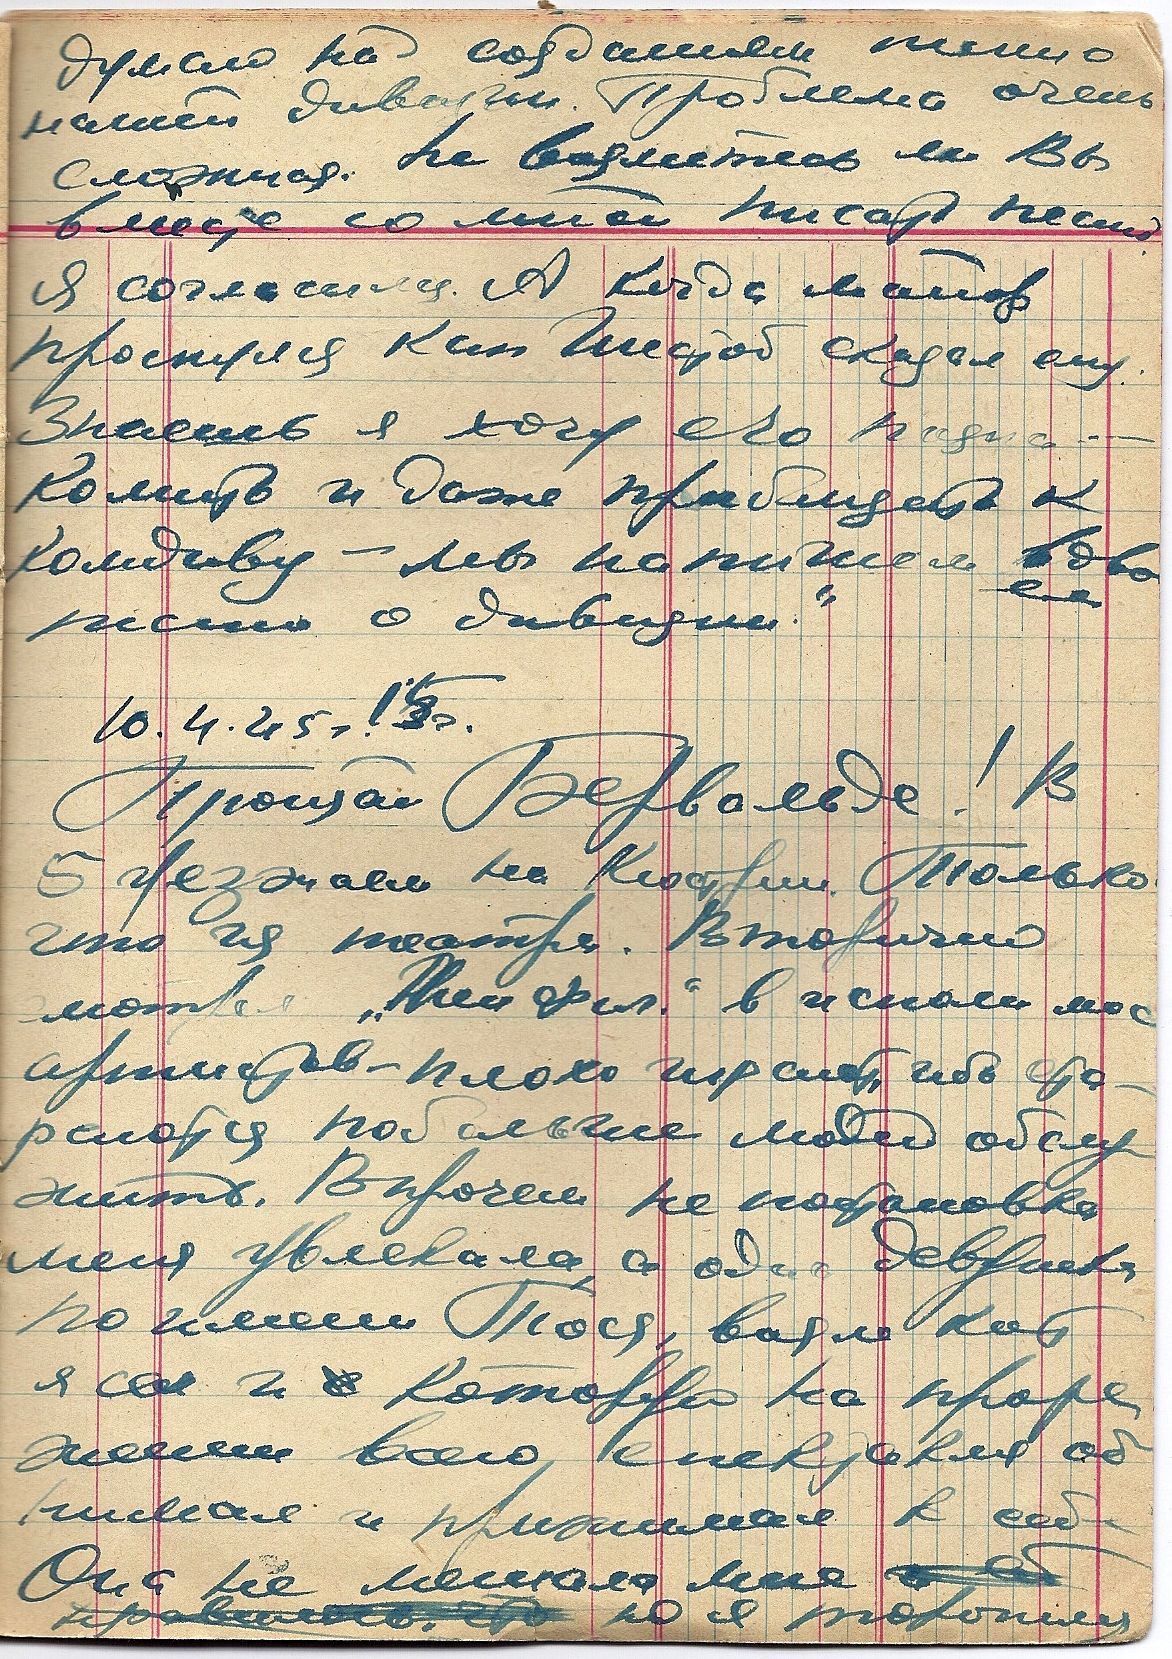 думаю над созданием песни
нашей дивизии. Проблема очень
сложная. Не возьметесь ли Вы
вместе со мной писать песню.
Я согласился. А когда майор
проснулся кап сказал ему.
Знаешь я хочу его позна-
комить и даже приблизить к
комдиву – мы напишем вдво
ем
песню о дивизии."
10.4.45 г.
Прощай Бервальде! В
5 уезжаем на Кюстрин. Только
что из театра. Вторично
смотрел в исполн мос
артистов – плохо играют, ибо ста-
раются побольше людей обслу-
жить. Впрочем не постановка
меня увлекала, а одна девушка
по имени Тося, возле кот
я сел и которую на протя
жении всего спектакля об
нимал и прижимал к себе
Она не мешала мне
но я торопился